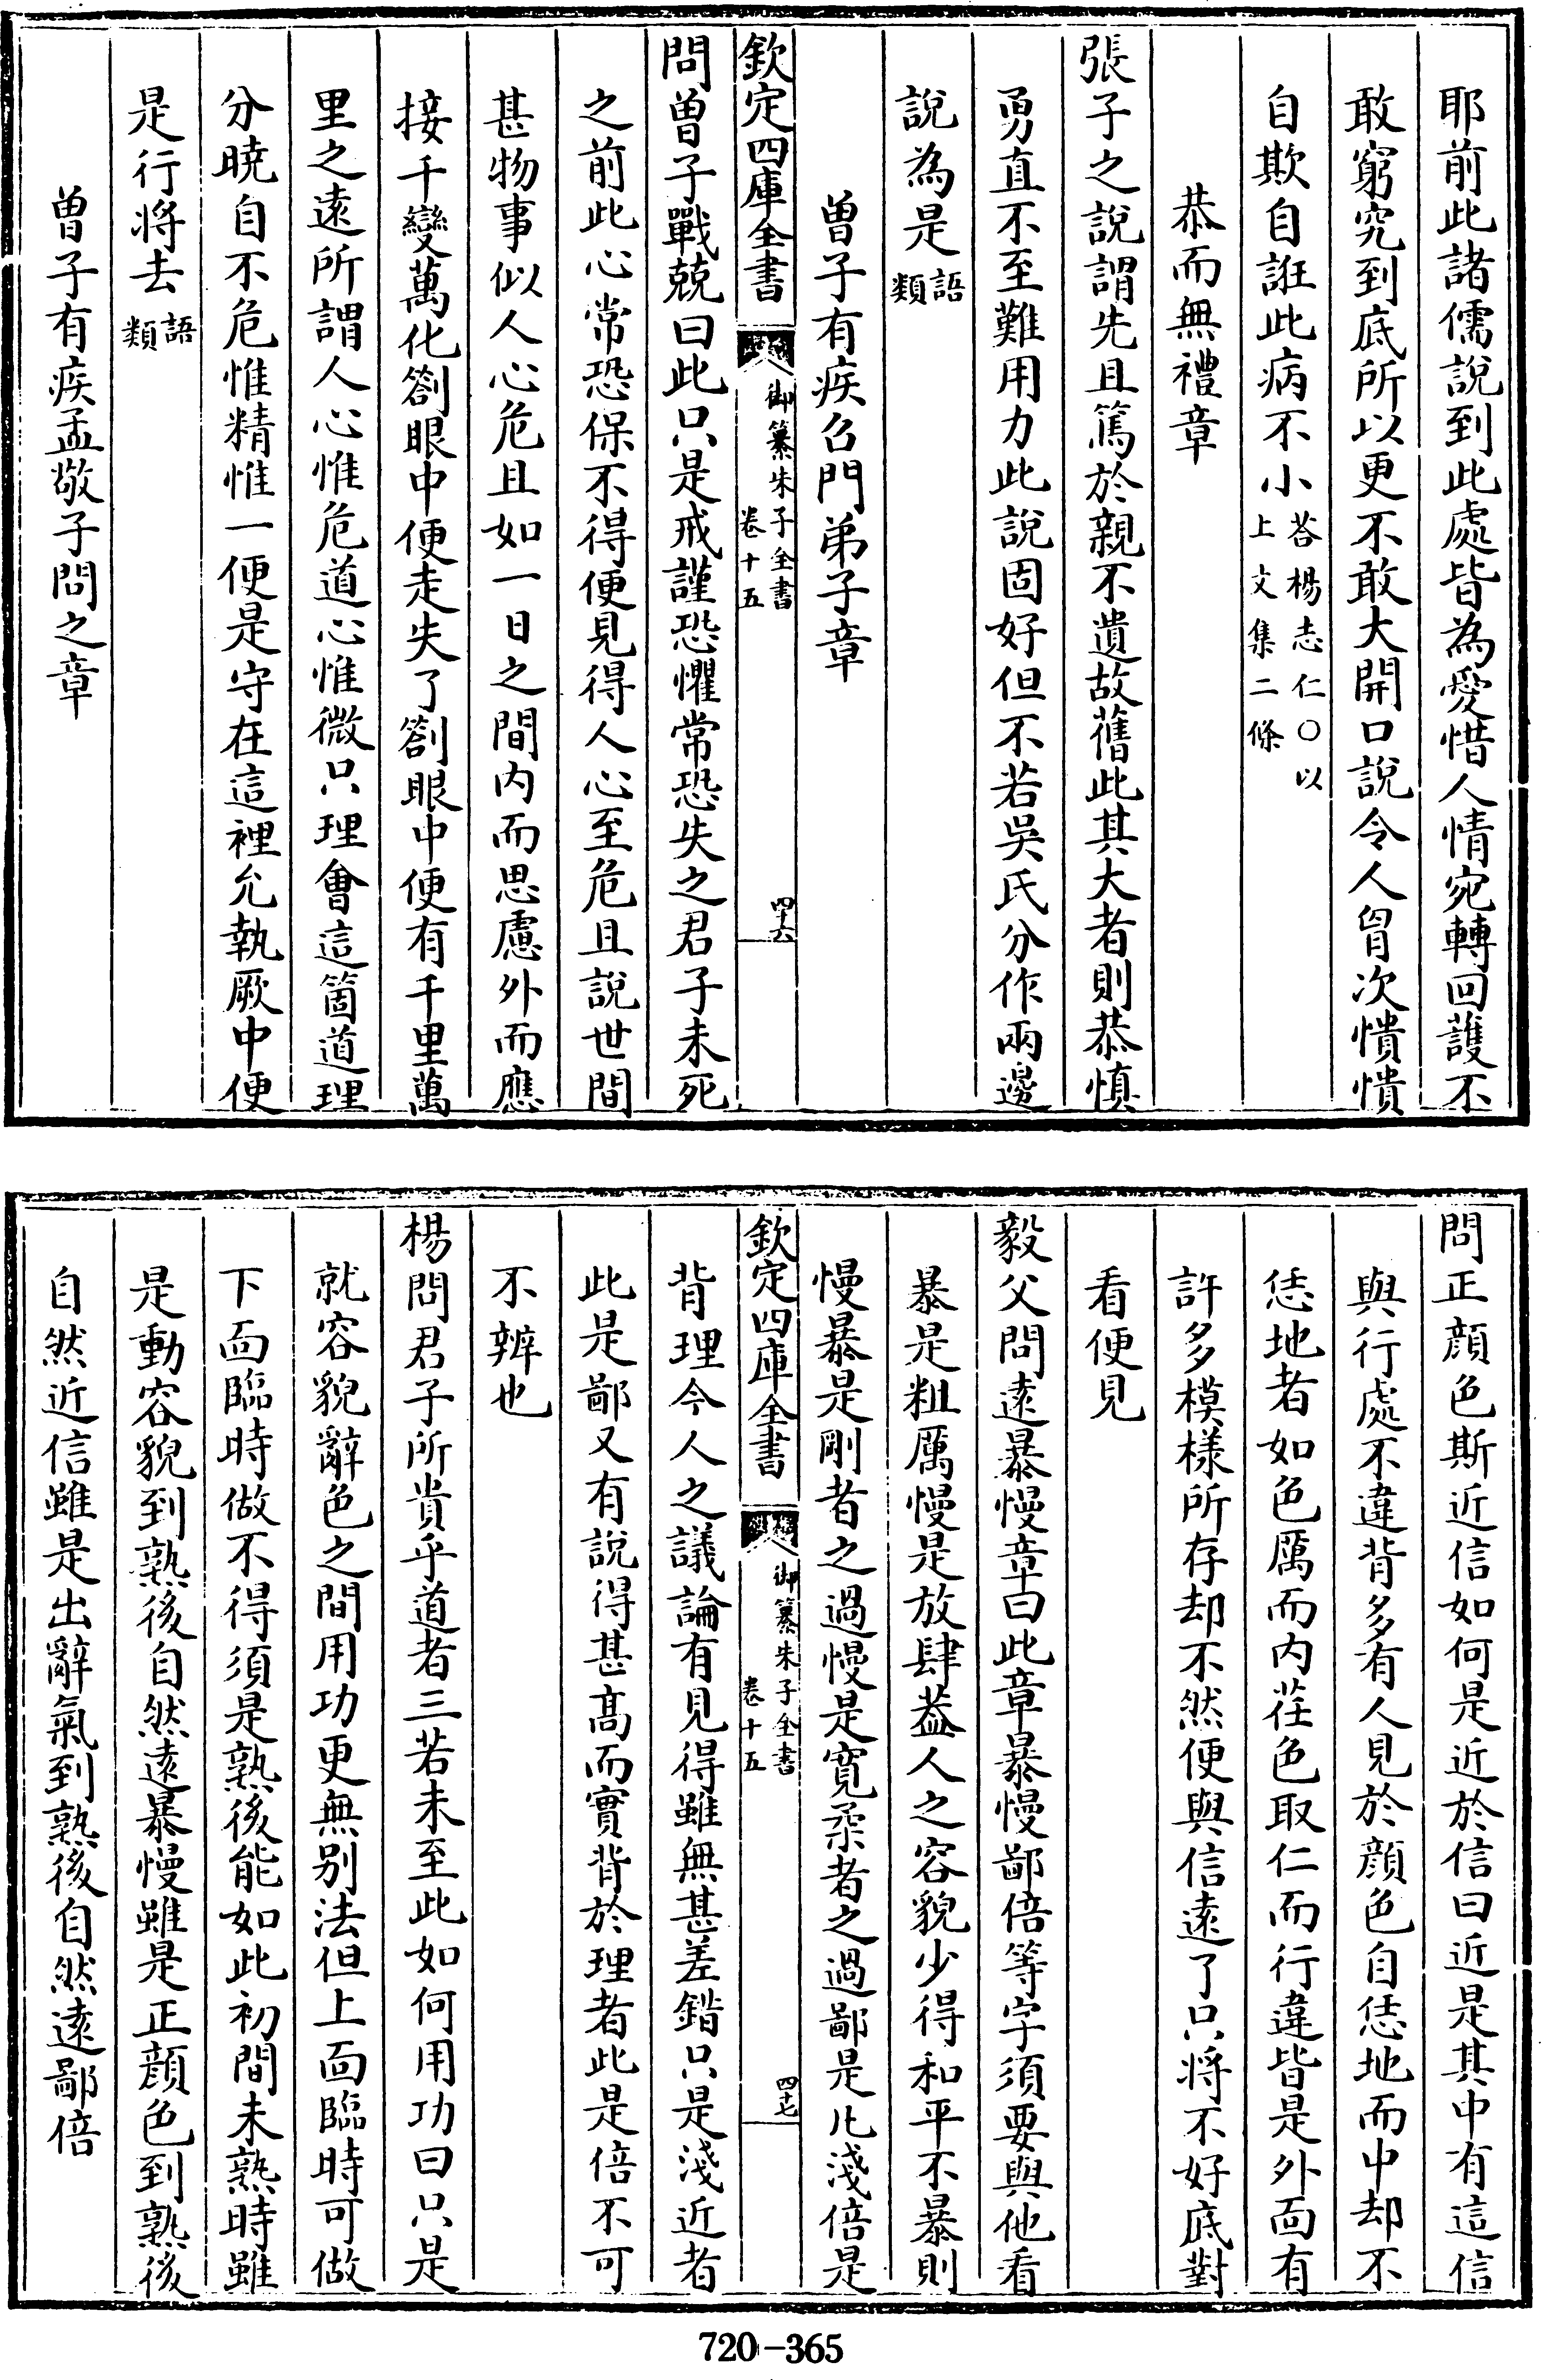 耶前此諸儒說到此處皆為愛惜人情宛轉回護不
敢窮究到底所以更不敢大開口說令人胷次憒憒
自欺自誑此病不小荅楊志仁○以上文集二條
恭而無禮章
張子之說謂先且篤於親不遺故舊此其大者則恭慎
勇直不至難用力此說固好但不若吳氏分作兩邊
說為是語類
曾子有疾召門弟子章
欽定四庫全書
御纂朱子全書
卷十五
四十六
問曾子戰兢曰此只是戒謹恐懼常恐失之君子未死
之前此心常恐保不得便見得人心至危且說世間
甚物事似人心危且如一日之間內而思慮外而應
接千變萬化劄眼中便走失了劄眼中便有千里萬
里之遠所謂人心惟危道心惟微只理會這箇道理
分曉自不危惟精惟一便是守在這裡允執厥中便
是行將去語類
曾子有疾孟敬子問之章
問正顔色斯近信如何是近於信曰近是其中有這信
與行處不違背多有人見於顔色自恁地而中却不
恁地者如色厲而內荏色取仁而行違皆是外面有
許多模樣所存却不然便與信遠了只將不好底對
看便見
毅父問遠暴慢章曰此章暴慢鄙倍等字須要與他看
暴是粗厲慢是放肆葢人之容貌少得和平不暴則
慢暴是剛者之過慢是寬柔者之過鄙是凡淺倍是
欽定四庫全書
御纂朱子全書
卷十五
四十七
背理今人之議論有見得雖無甚差錯只是淺近者
此是鄙又有說得甚高而實背於理者此是倍不可
不辨也
楊問君子所貴乎道者三若未至此如何用功曰只是
就容貌辭色之間用功更無别法但上面臨時可做
下面臨時做不得須是熟後能如此初間未熟時雖
是動容貌到熟後自然遠暴慢雖是正顔色到熟後
自然近信雖是出辭氣到熟後自然遠鄙倍
720-365